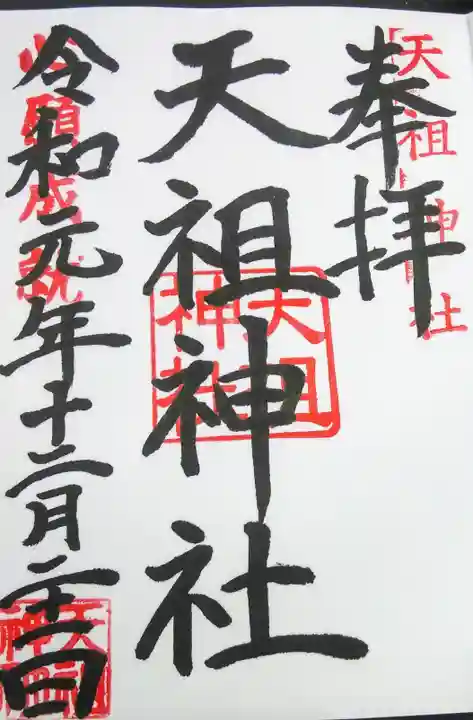 奉拝
天祖神社
天祖神社
天祖神社
令和元年十二月二十一日
心願成就